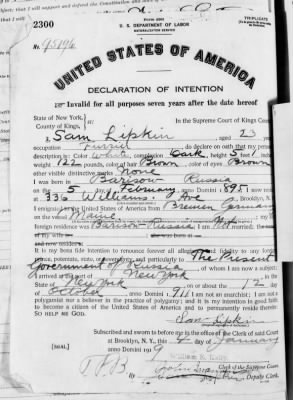 TRIPLICATE
Form 2203
2300
U. S. DEPARTMENT OF LABOR
NATURALIZATION SERVICE
No. 95196
UNITED STATES OF AMERICA
DECLARATION OF INTENTION
Invalid for all purposes seven years after the date hereof
State of New York,
County of Kings,
In the Supreme Court of Kings County
I, Sam Lipkin aged 23
occupation Furrier, do declare on oath that my personal
description is: Color White, complexion Dark, height 5 feet
weight 122 pounds, color of hair Brown, color of eyes Brown
other visible distinctive marks None
I was born in Barisow Russia
on the 5 day of February, anno Domini 1895
at 336 Williams Ave Brooklyn, N.
I emigrated to the United States of America from Bremen Germany
on the vessel Maine
foreign residence was Barisow Russia
It is my bona fide intention to renounce forever all allegiance and fidelity to any foreign
prince, potentate, state, or sovereignty, and particularly to The Present
Government of Russia, of whom I am now a subject;
I arrived at the port of New York
State of New York on or about the 12 day
of October, anno Domini 1911; I am not an anarchist; I am not a
polygamist nor a believer in the practice of polygamy; and it is my intention in good faith
to become a citizen of the United States of America and to permanently reside therein:
SO HELP ME GOD.
Sam Lipkin
Subscribed and sworn to before me in the office of the Clerk of said Court
at Brooklyn, N. Y., this day of January
[SEAL] anno Domini 1919
William E. Kelly
Clerk of the Supreme Court
Deputy Clerk.